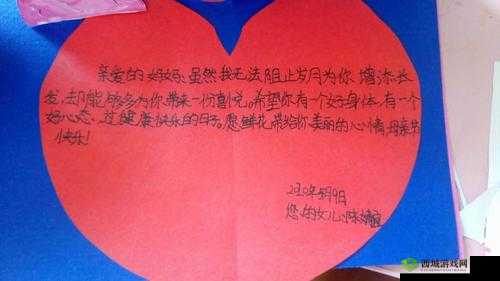 亲爱的妈妈:虽然我无法阻止岁月为你增添长
发,却能够多为你带来一份喜悦。希望你有一个好身体,有一个
好心态,过健康快乐的日子。愿鲜花带给你美丽的心情,母亲节
快乐!
2010年5月9日
您的女儿:陈婧
西域游戏网